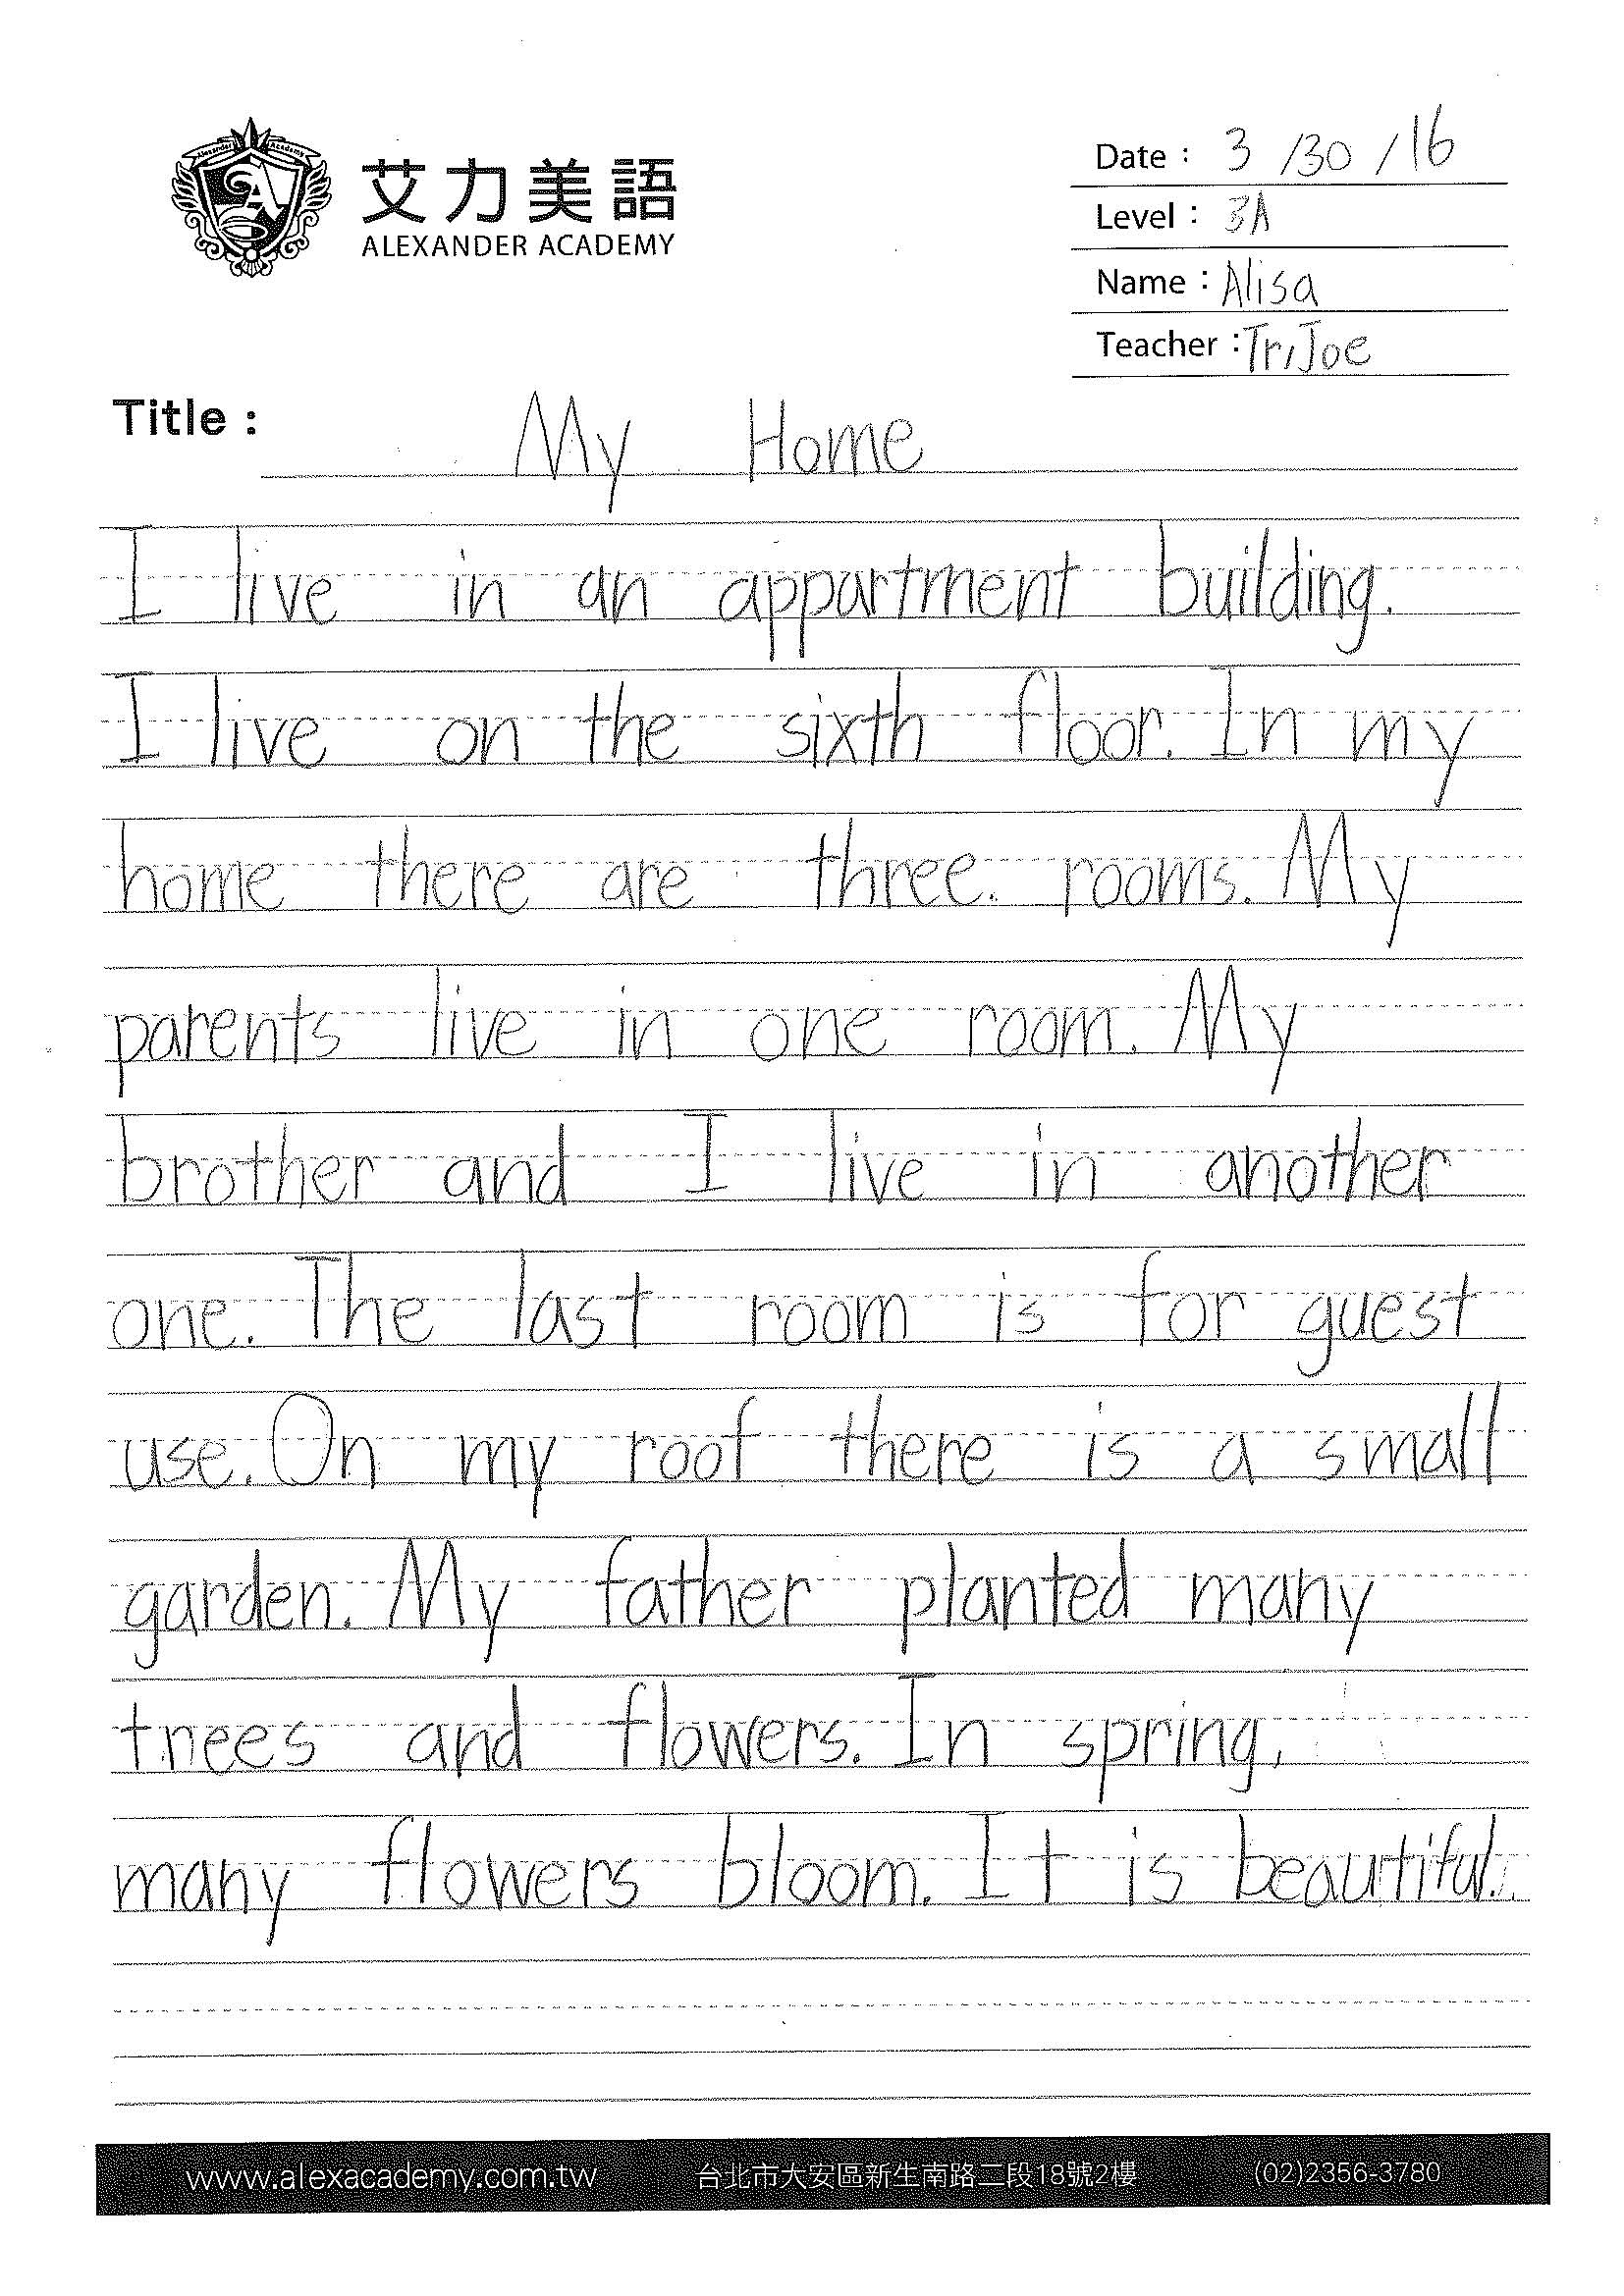 Alexander Academy
艾力美語
ALEXANDER ACADEMY
Date： 3 /30 / 16
Level： 3A
Name：Alisa
Teacher：Tr, Joe
Title： My Home
I live in an appartment building.
I live on the sixth floor. In my
home there are three. rooms. My
parents live in one room. My
brother and I live in another
one. The last room is for guest
use. On my roof there is a small
garden. My father planted many
trees and flowers. In spring,
many flowers bloom. It is beautiful.
www.alexacademy.com.tw 台北市大安區新生南路二段18號2樓 (02)2356-3780